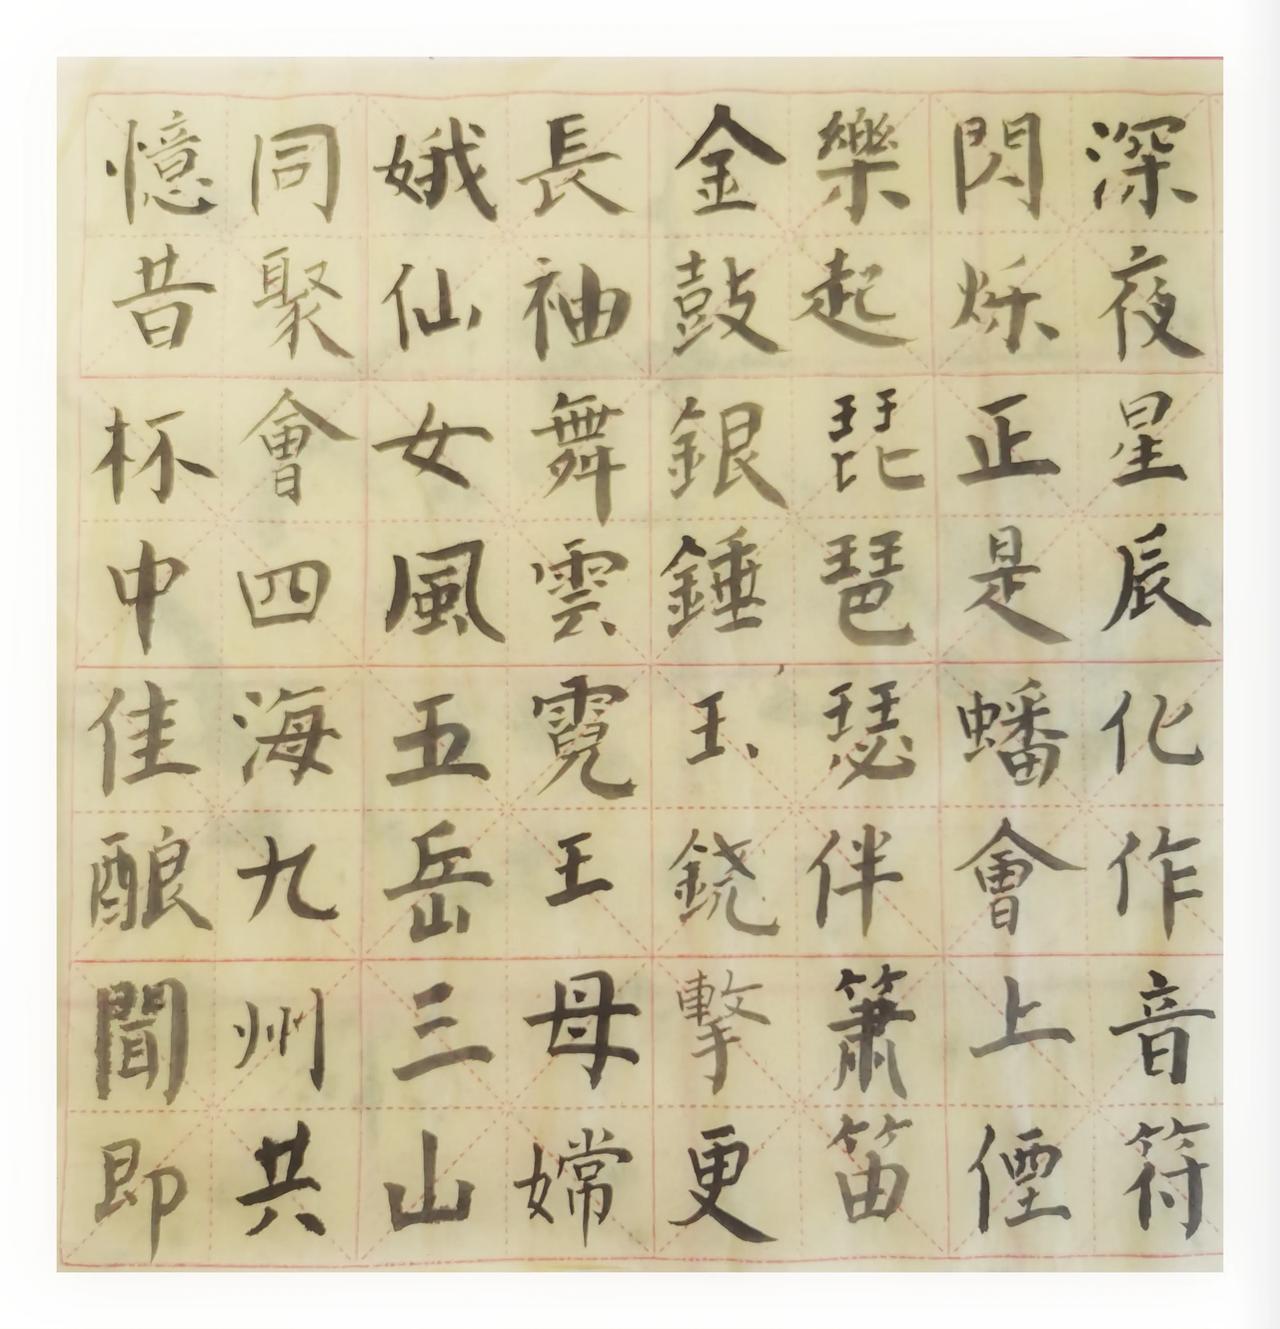 深夜星辰化作音符
閃烁正是蟠會上僊
樂起琵琶瑟伴簫笛
金鼓銀錘玉铙擊更
長袖舞雲霓王母嫦
娥仙女風五岳三山
同聚會四海九州共
憶昔杯中佳酿聞即